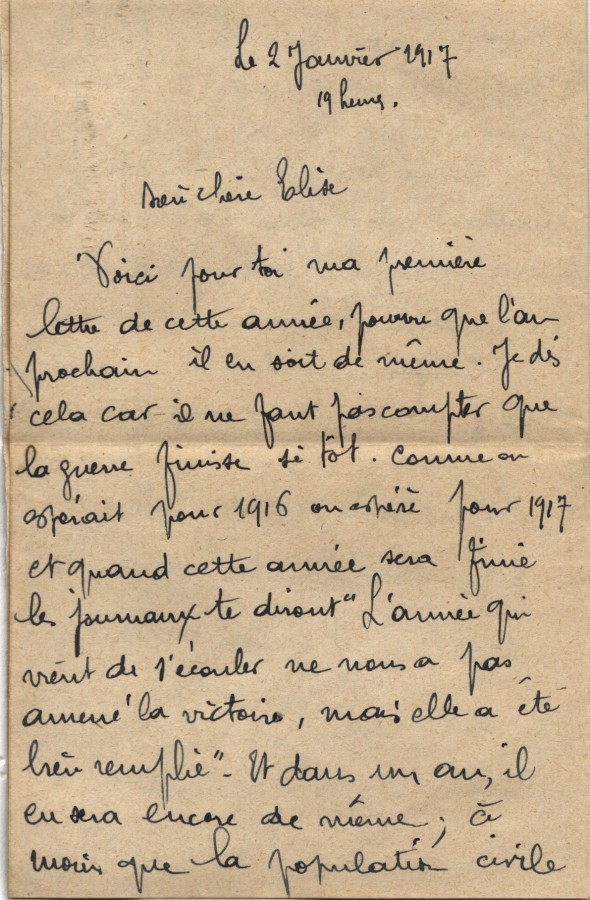 Le 2 Janvier 1917
19 heures.
Bien chère Elise
Voici pour toi ma première
lettre de cette année, pourvu que l'an
prochain il en soit de même. Je dis
cela car il ne faut pas compter que
la guerre finisse si tôt. Comme on
espérait pour 1916 on espère pour 1917
et quand cette année sera finie
les journaux te diront "L'année qui
vient de s'écouler ne nous a pas
amené la victoire, mais elle a été
bien remplie". Et dans un an, il
en sera encore de même, à
moins que la population civile